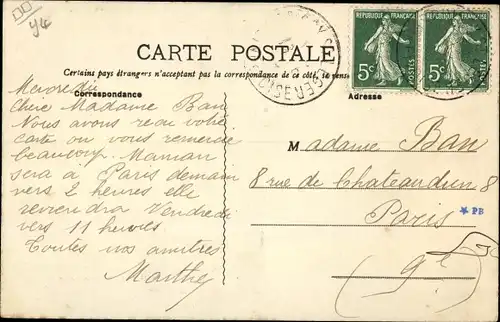 y4
CARTE POSTALE
Certains pays étrangers n'acceptent pas la correspondance de ce côté, se
Correspondance
Adresse
REPUBLIQUE FRANÇAISE
5c
POSTES
REPUBLIQUE FRANÇAISE
5c
POSTES
Mercredi
Chère Madame Ban
Nous avons reçu votre
carte ou vous remercie
beaucoup. Maman
sera à Paris demain
vers 2 heures elle
reviendra Vendredi
vers 11 heures
Toutes nos amitiés
Marthe
Madame Ban
8 rue de Chateaudun 8
Paris
PB
9e